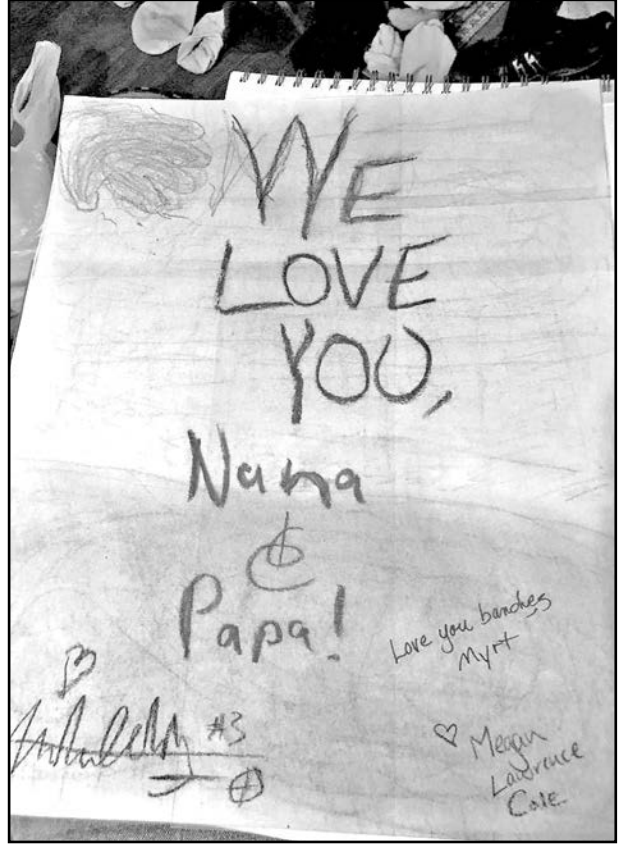 WE
LOVE
YOU,
Nana
&
Papa!
Love you banches
Myrt
#3
Megan
Lawrence
Cole